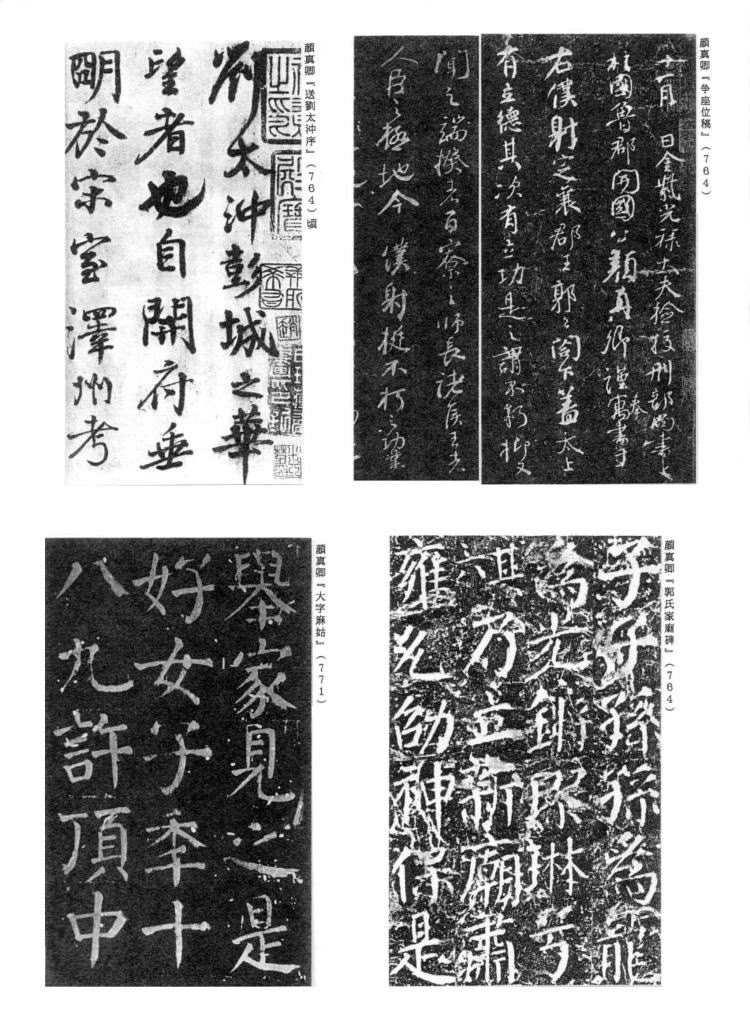 顔真卿『争座位稿』(764)
十一月 日金紫光祿大夫檢校刑部尚書上
柱國魯郡開國公顔真卿謹奉寓書于
右僕射定襄郡王郭公閣下蓋太上
有立德其次有立功是之謂不朽抑又
聞之端揆者百寮之師長諸侯王者
人臣之極地今僕射挺不朽之功業
顔真卿『送劉太沖序』(764)頃
劉太沖彭城之華
望者也自開府垂
明於宋室澤州考
顔真卿『郭氏家廟碑』(764)
子子孫孫為龍
為光鏘璆琳兮
乃立新廟肅
雍允劭神保是
顔真卿『大字麻姑』(771)
舉家見之是
好女子年十
八九許頂中